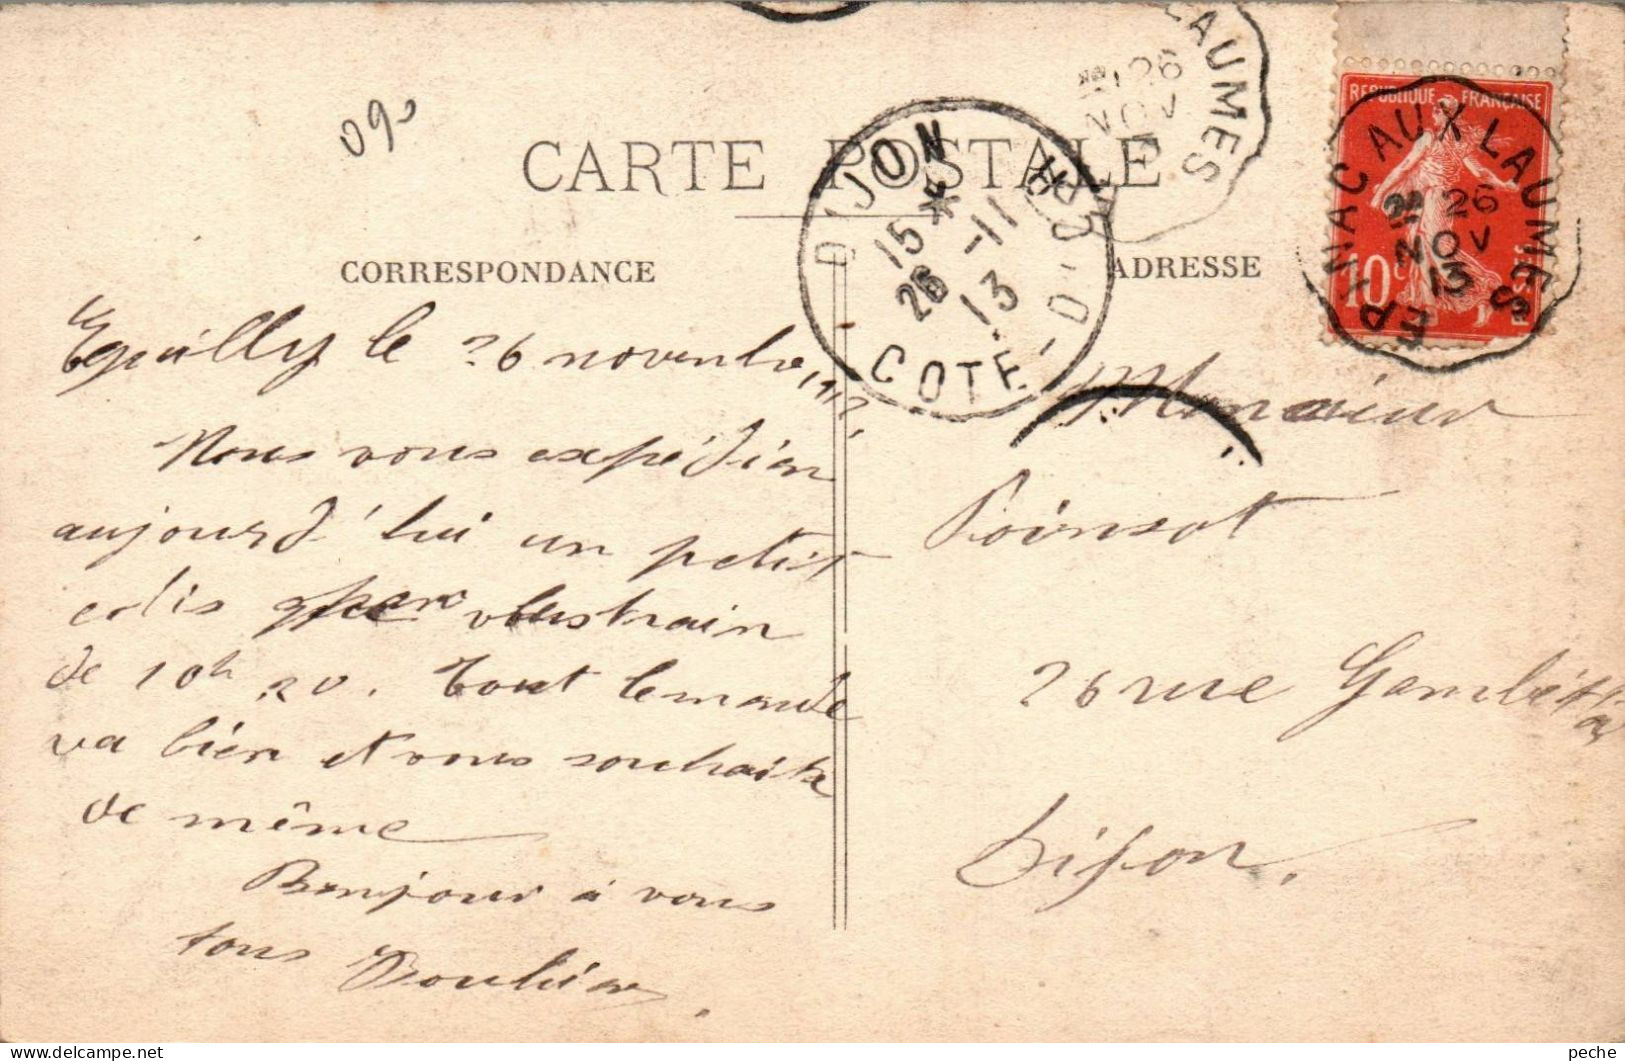 090
CARTE POSTALE
CORRESPONDANCE
ADRESSE
LAUMES
26
NOV
DIJON
15 *
26 -11
13
COTE-D'OR
REPUBLIQUE FRANÇAISE
10c POSTES
EPINAC AUX LAUMES
26
NOV
13
Eguilly le 26 novembre 1913
Nous vous expédion
aujourd'hui un petit
colis par train
de 10h 20. Tout le monde
va bien et vous souhaite
de même
Bonjour à vous
tous
Monsieur
Poinsot
26 rue Gambetta
Dijon.
peche